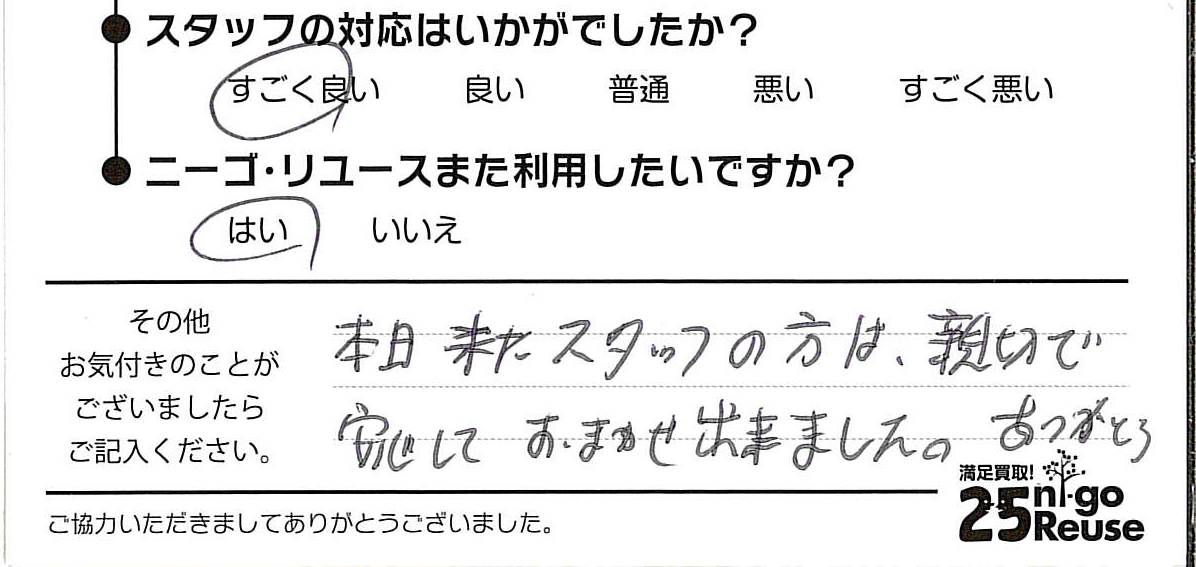 スタッフの対応はいかがでしたか？
すごく良い 良い 普通 悪い すごく悪い
ニーゴ・リユースまた利用したいですか？
はい いいえ
その他
お気付きのことが
ございましたら
ご記入ください。
本日来たスタッフの方は、親切で
安心して おまかせ出来ました。ありがとう
満足買取!
25 ni-go
Reuse
ご協力いただきましてありがとうございました。